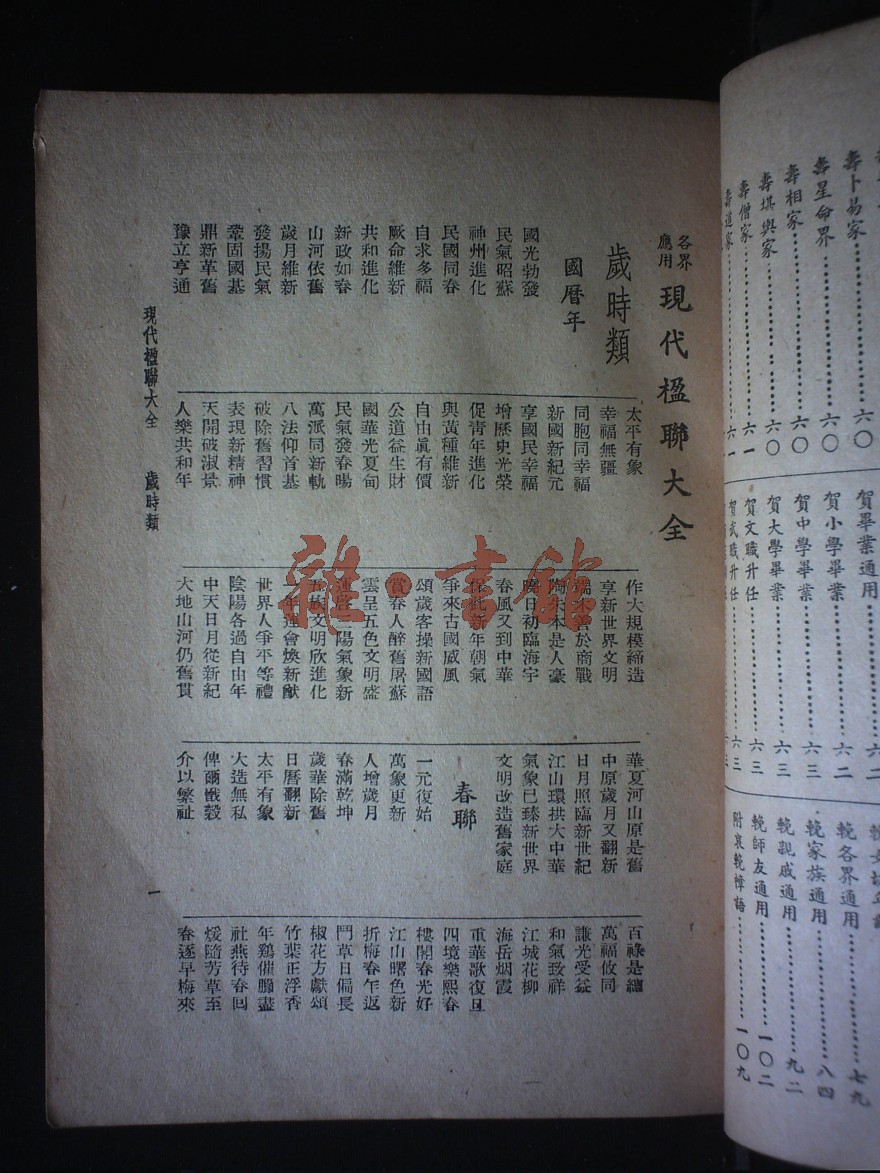 各界應用 現代楹聯大全
歲時類
國曆年
國光勃發
民氣昭蘇
神州進化
民國同春
自求多福
厥命維新
共和進化
新政如春
山河依舊
歲月維新
發揚民氣
鞏固國基
鼎新革舊
豫立亨通
太平有象
幸福無疆
同胞同幸福
新國新紀元
享國民幸福
增歷史光榮
促青年進化
與黃種維新
自由真有價
公道益生財
國華光夏甸
民氣發春暘
萬派同新軌
八法仰首基
破除舊習慣
表現新精神
天開破淑景
人樂共和年
作大規模締造
享新世界文明
端木善於商戰
陶朱本是人豪
曉日初臨海宇
春風又到中華
保此新年朝氣
爭來古國威風
頌歲客操新國語
賞春人醉舊屠蘇
雲呈五色文明盛
陽氣象新
五族文明欣進化
年運會煥新猷
世界人爭平等禮
陰陽各過自由年
中天日月從新紀
大地山河仍舊貫
華夏河山原是舊
中原歲月又翻新
日月照臨新世紀
江山環拱大中華
氣象已臻新世界
文明改造舊家庭
春聯
一元復始
萬象更新
人增歲月
春滿乾坤
歲華除舊
日曆翻新
太平有象
大造無私
俾爾戩穀
介以繁祉
百祿是總
萬福攸同
謙光受益
和氣致祥
江城花柳
海岳烟霞
重華歌復旦
四境樂熙春
樓閣春光好
江山曙色新
折梅春乍返
鬥草日偏長
椒花方獻頌
竹葉正浮香
年鷄催臘盡
社燕待春回
煖隨芳草至
春逐早梅來
現代楹聯大全 歲時類
一
雜·書館
壽卜易家 六〇
壽星命界 六〇
壽相家 六〇
壽堪輿家 六〇
壽僧家 六一
壽道家 六一
賀畢業通用 六二
賀小學畢業 六二
賀中學畢業 六三
賀大學畢業 六三
賀文職升任 六三
賀武職升任 六三
輓各界通用 七九
輓家族通用 八四
輓親戚通用 九二
輓師友通用 一〇二
附哀輓幛語 一〇九